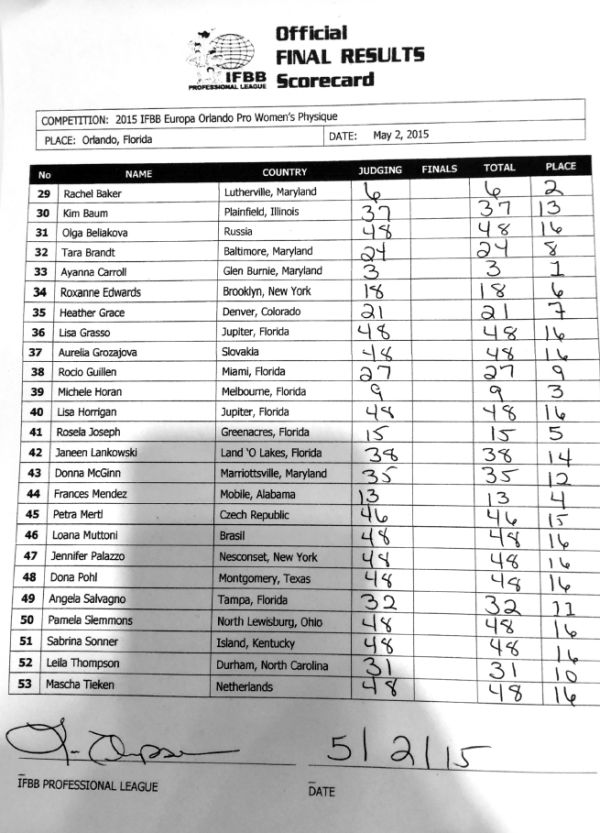 Official
FINAL RESULTS
Scorecard
IFBB
PROFESSIONAL LEAGUE
COMPETITION: 2015 IFBB Europa Orlando Pro Women's Physique
PLACE: Orlando, Florida DATE: May 2, 2015
No NAME COUNTRY JUDGING FINALS TOTAL PLACE
29 Rachel Baker Lutherville, Maryland 6 6 2
30 Kim Baum Plainfield, Illinois 37 37 13
31 Olga Beliakova Russia 48 48 16
32 Tara Brandt Baltimore, Maryland 24 24 8
33 Ayanna Carroll Glen Burnie, Maryland 3 3 1
34 Roxanne Edwards Brooklyn, New York 18 18 6
35 Heather Grace Denver, Colorado 21 21 7
36 Lisa Grasso Jupiter, Florida 48 48 16
37 Aurelia Grozajova Slovakia 48 48 16
38 Rocio Guillen Miami, Florida 27 27 9
39 Michele Horan Melbourne, Florida 9 9 3
40 Lisa Horrigan Jupiter, Florida 48 48 16
41 Rosela Joseph Greenacres, Florida 15 15 5
42 Janeen Lankowski Land 'O Lakes, Florida 38 38 14
43 Donna McGinn Marriottsville, Maryland 35 35 12
44 Frances Mendez Mobile, Alabama 13 13 4
45 Petra Mertl Czech Republic 46 46 15
46 Loana Muttoni Brasil 48 48 16
47 Jennifer Palazzo Nesconset, New York 48 48 16
48 Dona Pohl Montgomery, Texas 48 48 16
49 Angela Salvagno Tampa, Florida 32 32 11
50 Pamela Slemmons North Lewisburg, Ohio 48 48 16
51 Sabrina Sonner Island, Kentucky 48 48 16
52 Leila Thompson Durham, North Carolina 31 31 10
53 Mascha Tieken Netherlands 48 48 16
5/2/15
IFBB PROFESSIONAL LEAGUE DATE